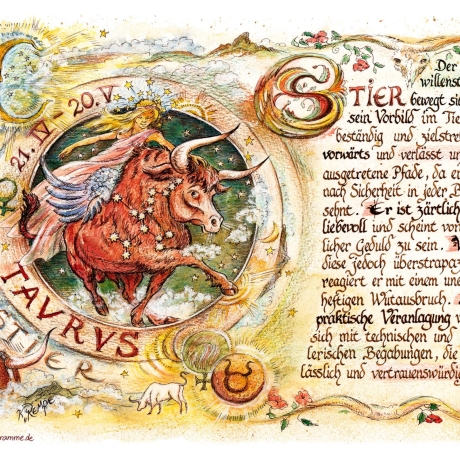 21. IV - 20. V
TAVRVS
STIER
K. Rempe
ramme.de
Der
willenst
STIER bewegt sie
sein Vorbild im Tie
beständig und zielstre
vorwärts und verlässt un
ausgetretene Pfade, da ei
nach Sicherheit in jeder B
sehnt. Er ist zärtlich
liebevoll und scheint vor
licher Geduld zu sein.
diese jedoch überstrapaz
reagiert er mit einem une
heftigen Wutausbruch.
praktische Veranlagung v
sich mit technischen und
lerischen Begabungen, die
lässlich und vertrauenswürdig